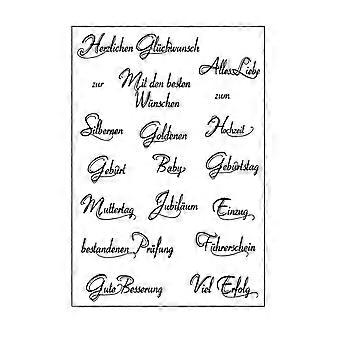 Herzlichen Glückwunsch
Alles Liebe
zur Mit den besten zum
Wünschen
Silbernen Goldenen Hochzeit
Geburt Baby Geburtstag
Muttertag Jubiläum Einzug
bestandenen Prüfung Führerschein
Gute Besserung Viel Erfolg